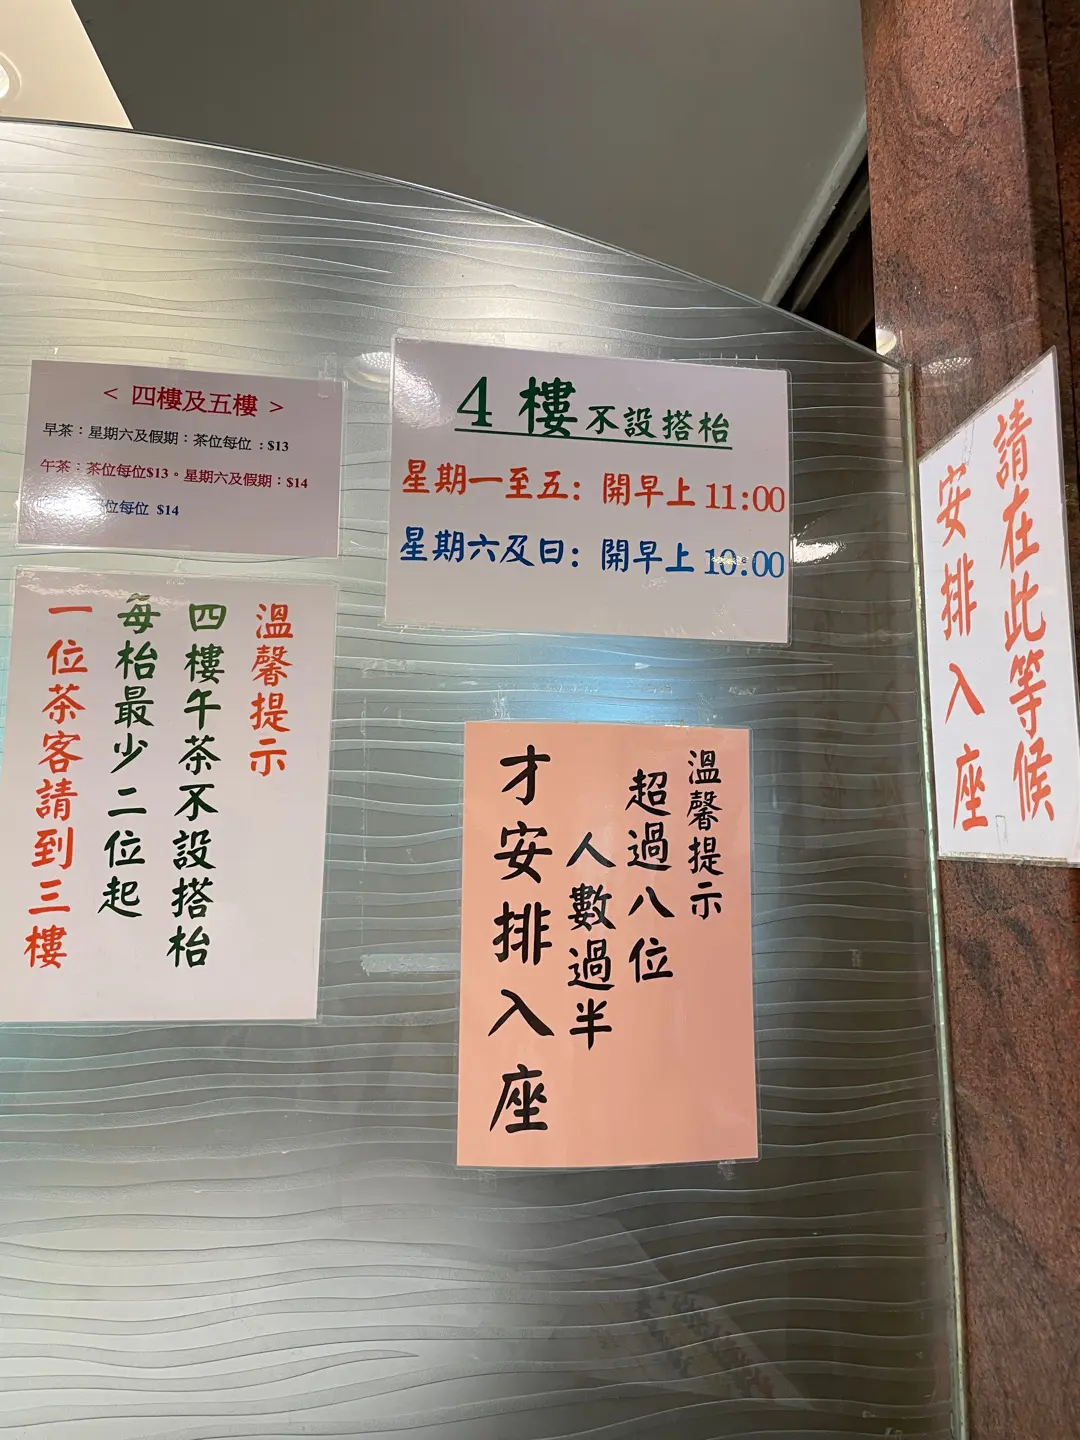 < 四樓及五樓 >
早茶：星期六及假期：茶位每位：$13
午茶：茶位每位$13。星期六及假期：$14
位每位 $14
4 樓不設搭枱
星期一至五: 開早上 11:00
星期六及日: 開早上 10:00
請在此等候
安排入座
溫馨提示
四樓午茶不設搭枱
每枱最少二位起
一位茶客請到三樓
溫馨提示
超過八位
人數過半
才安排入座